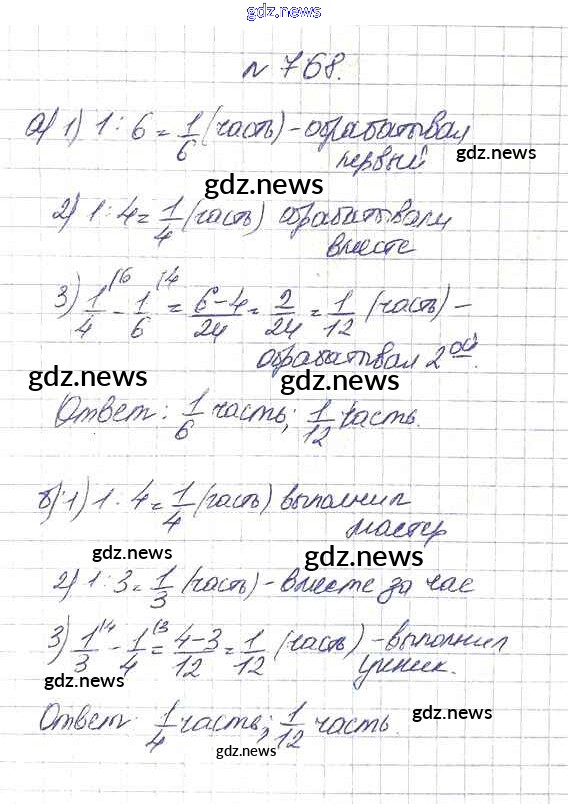 gdz.news
№ 768.
а) 1) 1 : 6 = 1/6 (часть) - обрабатывал
первый
gdz.news
gdz.news
2) 1 : 4 = 1/4 (часть) обрабатывали
вместе
3) 1/4 \6 - 1/6 \4 = 6-4/24 = 2/24 = 1/12 (часть) -
обрабатывал 2ой.
gdz.news
gdz.news
Ответ: 1/6 часть; 1/12 часть.
б) 1) 1 : 4 = 1/4 (часть) выполнил
мастер
gdz.news
gdz.news
2) 1 : 3 = 1/3 (часть) - вместе за час
3) 1/3 \4 - 1/4 \3 = 4-3/12 = 1/12 (часть) - выполнил
ученик.
gdz.news
Ответ: 1/4 часть; 1/12 часть.
gdz.news
gdz.news